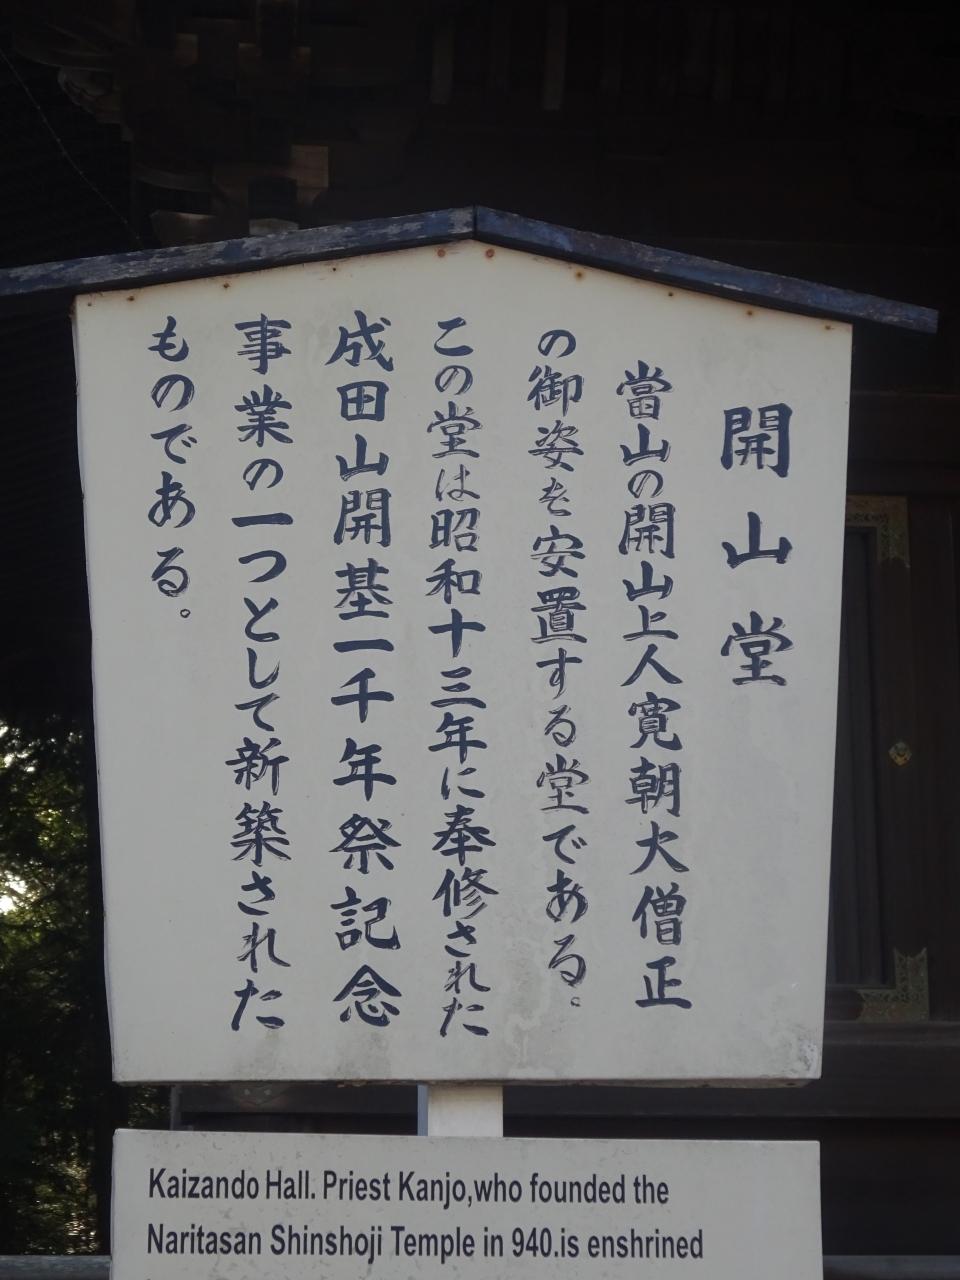 開山堂
當山の開山上人寛朝大僧正
の御姿を安置する堂である。
この堂は昭和十三年に奉修された
成田山開基一千年祭記念
事業の一つとして新築された
ものである。
Kaizando Hall. Priest Kanjo,who founded the
Naritasan Shinshoji Temple in 940.is enshrined